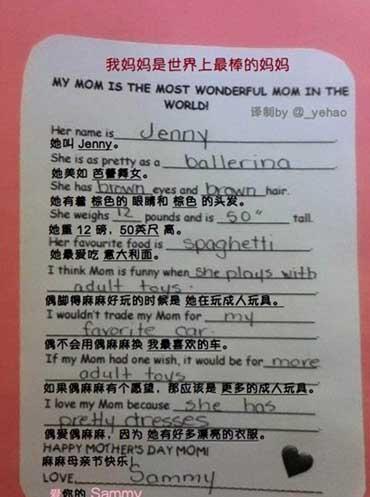 我妈妈是世界上最棒的妈妈
MY MOM IS THE MOST WONDERFUL MOM IN THE
WORLD!
译制by @_yehao
Her name is Jenny
她叫 Jenny。
She is as pretty as a ballerina
她美如 芭蕾舞女。
She has brown eyes and brown hair.
她有着 棕色的 眼睛和 棕色 的头发。
She weighs 12 pounds and is 50" tall.
她重 12 磅，50英尺 高。
Her favourite food is spaghetti
她最爱吃 意大利面。
I think Mom is funny when she plays with
adult toys.
偶脚得麻麻好玩的时候是 她在玩成人玩具。
I wouldn't trade my Mom for my
favorite car.
偶不会用偶麻麻换 我最喜欢的车。
If my Mom had one wish, it would be for more
adult toys
如果偶麻麻有个愿望，那应该是 更多的成人玩具。
I love my Mom because she has
pretty dresses
偶爱偶麻麻，因为 她有好多漂亮的衣服。
HAPPY MOTHER'S DAY MOM!
麻麻母亲节快乐！
LOVE, Sammy
爱你的 Sammy